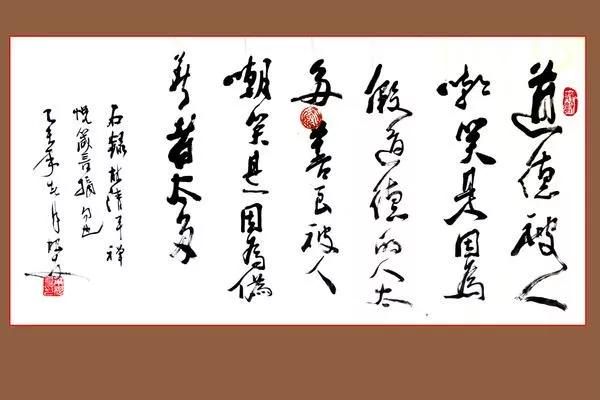 道德被人
嘲笑是因為
假道德的人太
多善良被人
嘲笑是因為偽
善者太多
清平禅
悦箴言摘句也